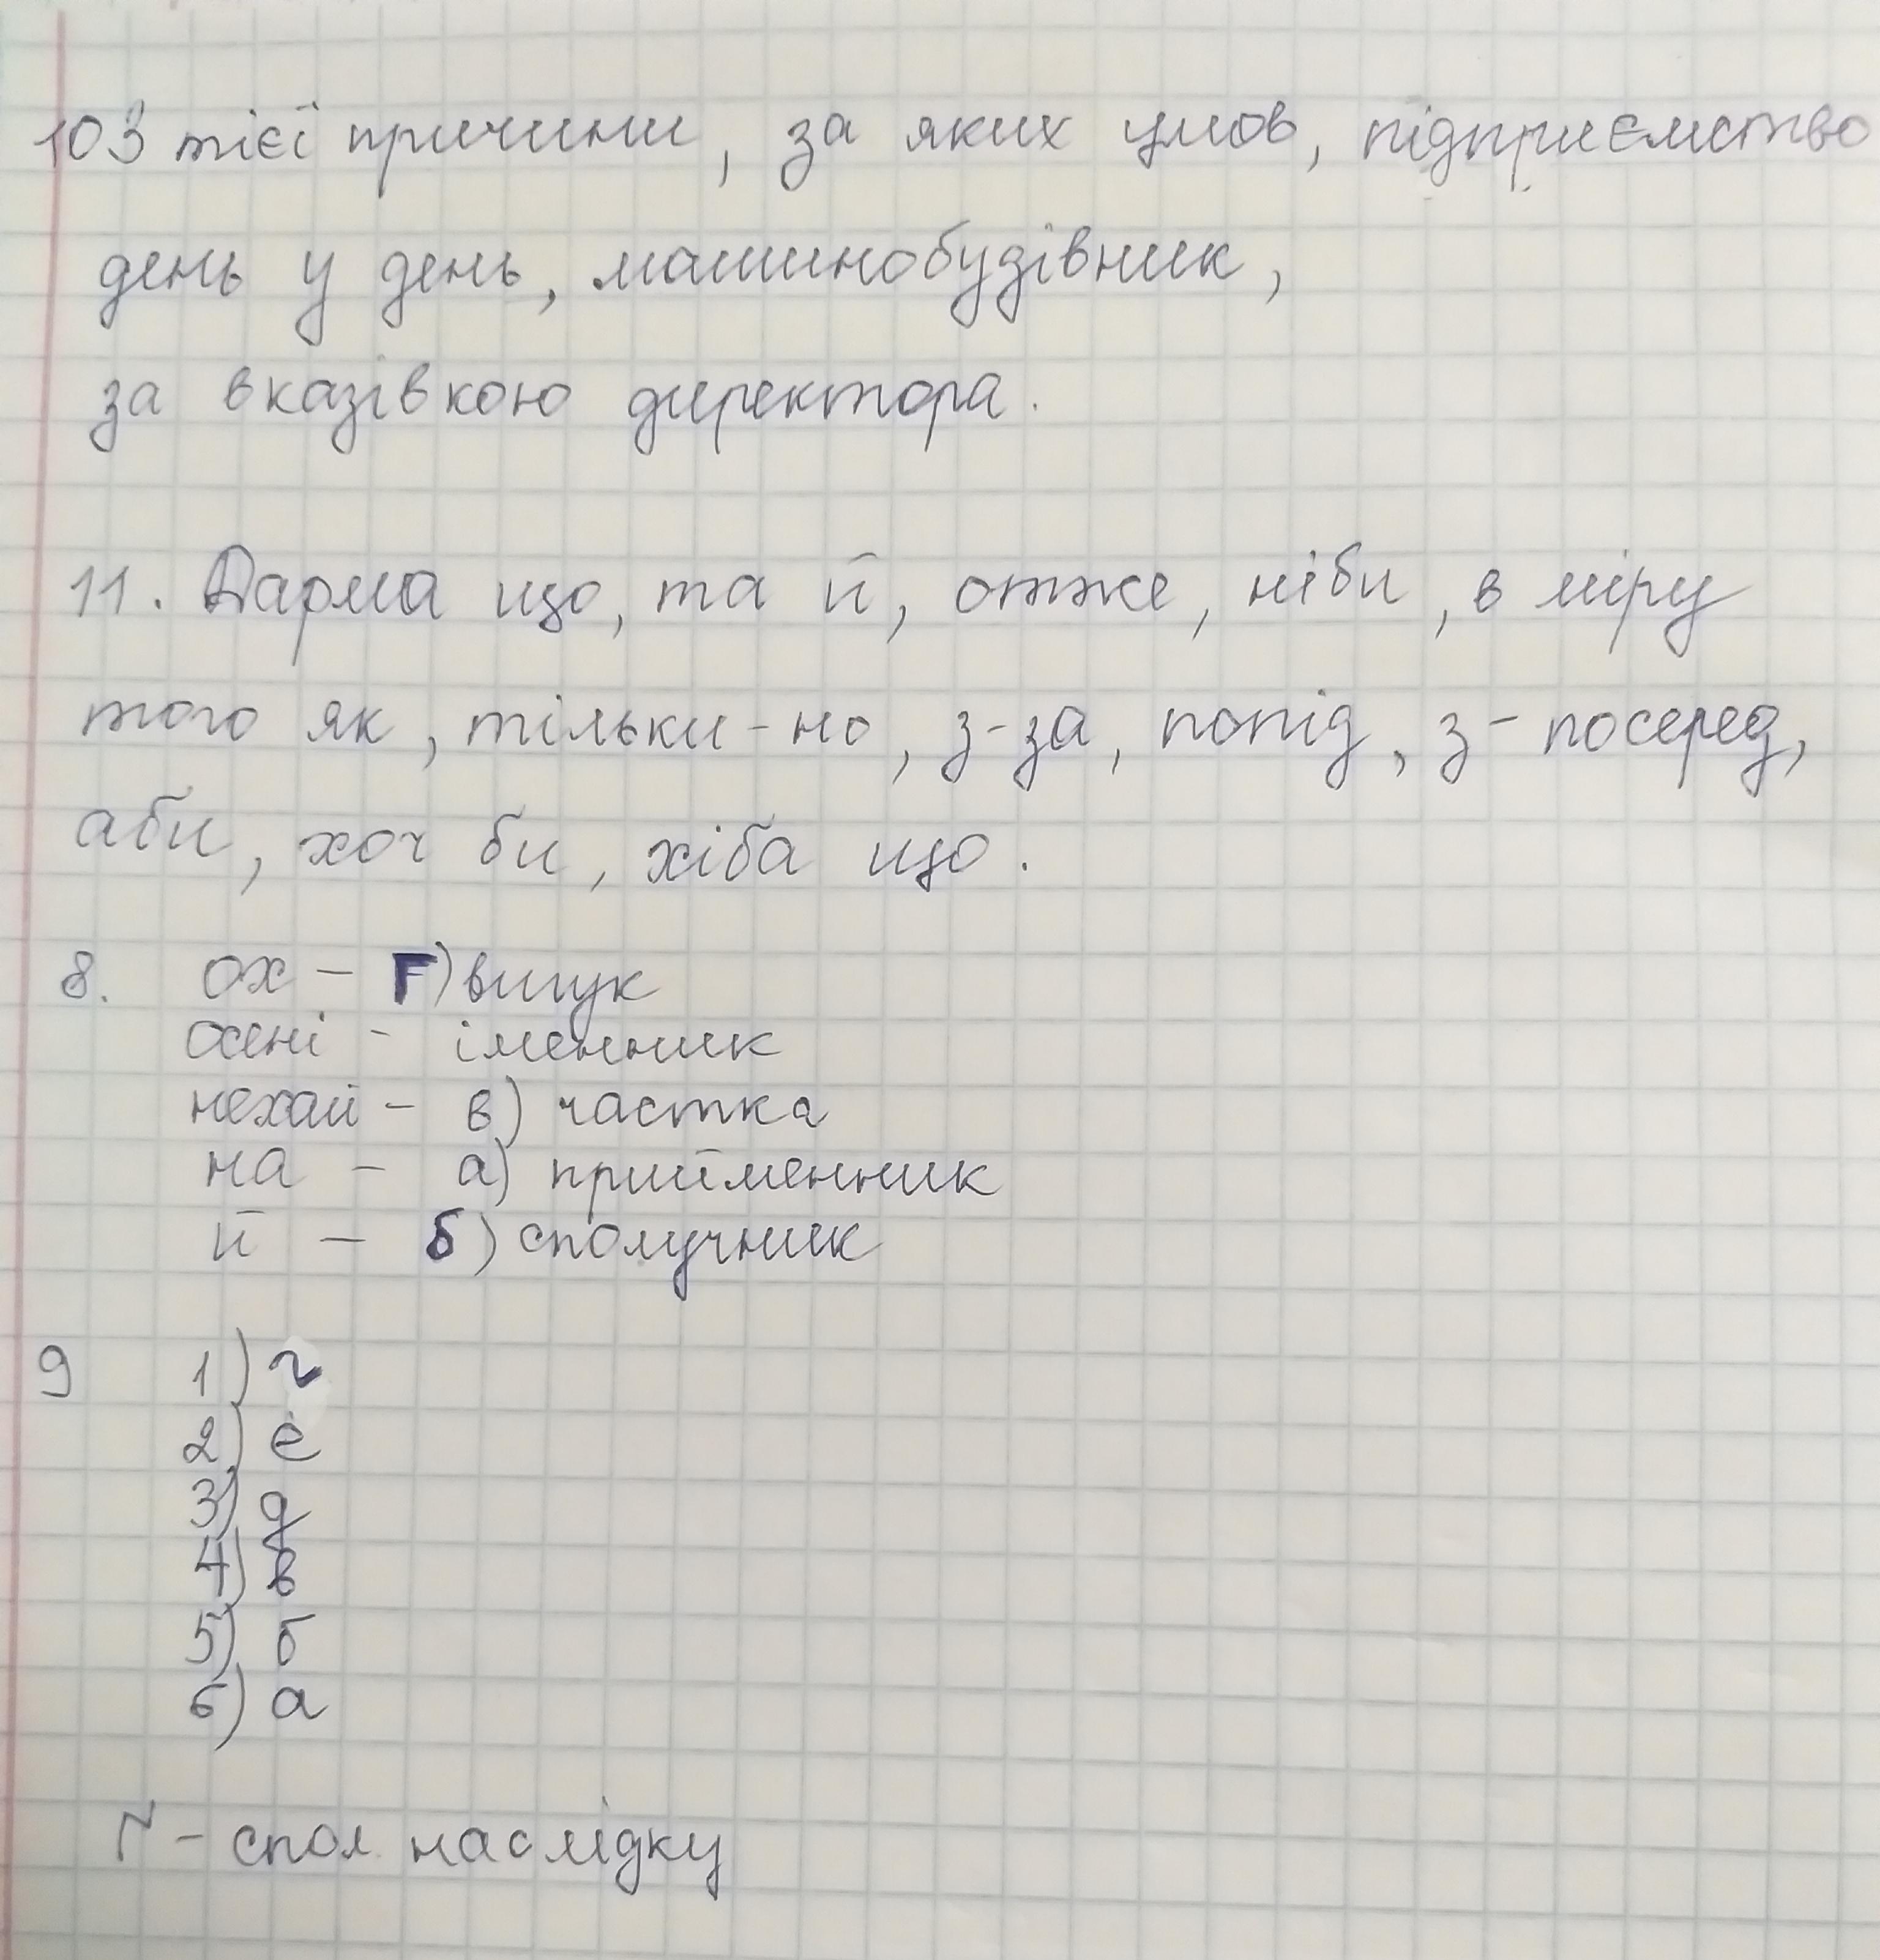 10 З тієї причини, за яких умов, підприємство
день у день, машинобудівник,
за вказівкою директора.
11. Дарма що, та й, отже, ніби, в міру
того як, тільки-но, з-за, попід, з-посеред,
аби, хоч би, хіба що.
8. ох - Г) вигук
осені - іменник
нехай - в) частка
на - а) прийменник
й - б) сполучник
9 1) г
2) є
3) д
4) в
5) б
6) а
Ґ - спол. наслідку